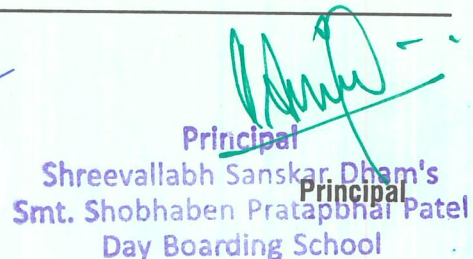 Principal
Shreevallabh Sanskar Dham's
Principal
Smt. Shobhaben Pratapbhai Patel
Day Boarding School